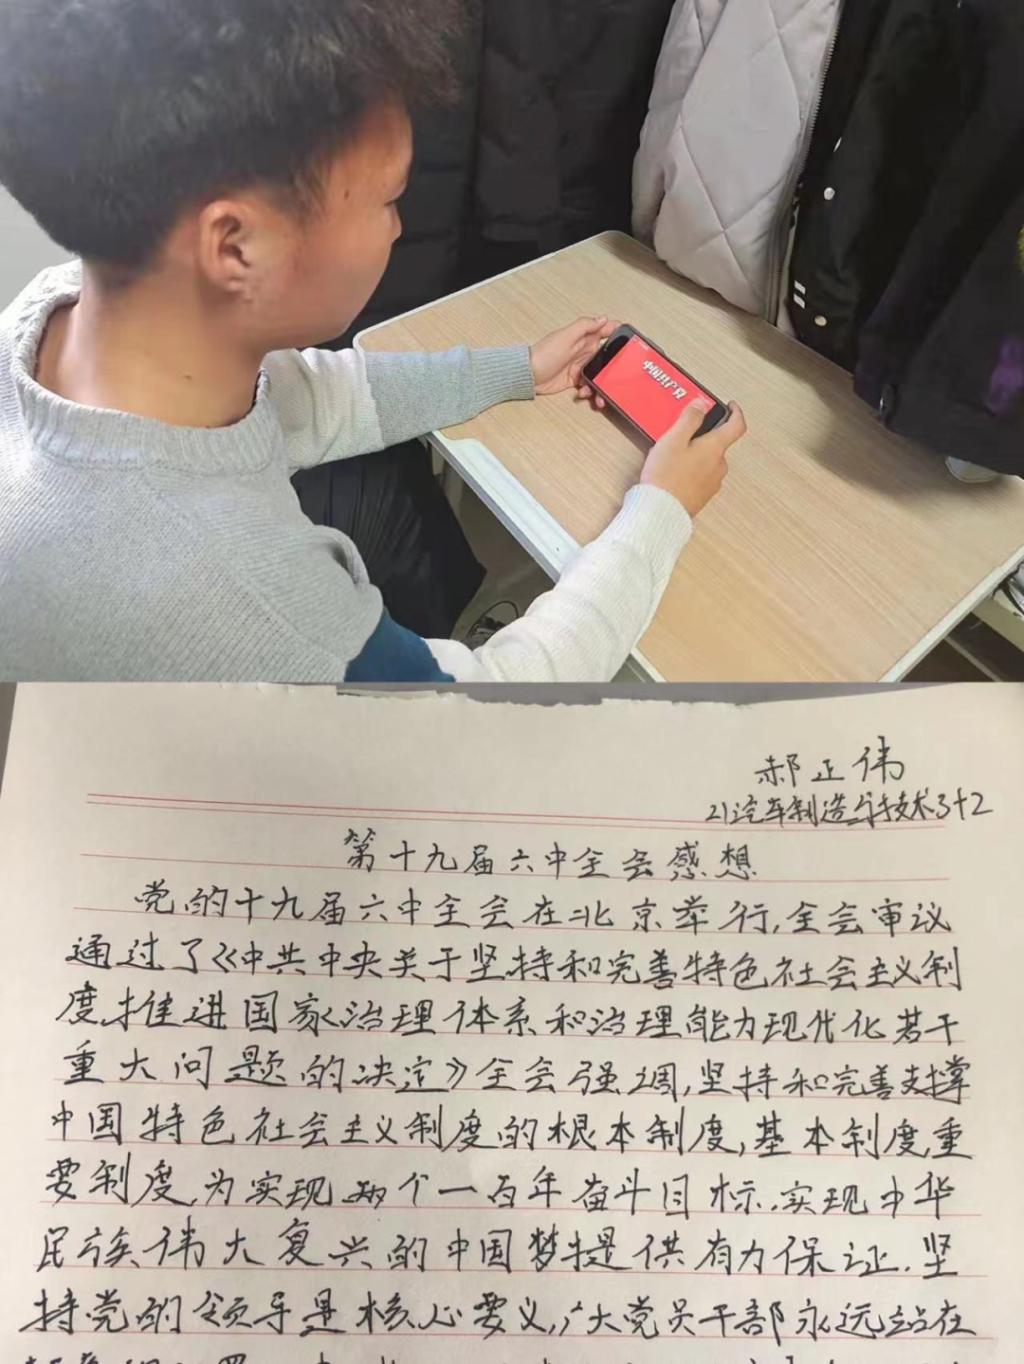 中国共产党
郝正伟
21汽车制造与技术3+2
第十九届六中全会感想
党的十九届六中全会在北京举行,全会审议
通过了《中共中央关于坚持和完善特色社会主义制
度,推进国家治理体系和治理能力现代化若干
重大问题的决定》全会强调,坚持和完善支撑
中国特色社会主义制度的根本制度,基本制度,重
要制度,为实现两个一百年奋斗目标.实现中华
民族伟大复兴的中国梦提供有力保证.坚
持党的领导是核心要义,广大党员干部永远站在